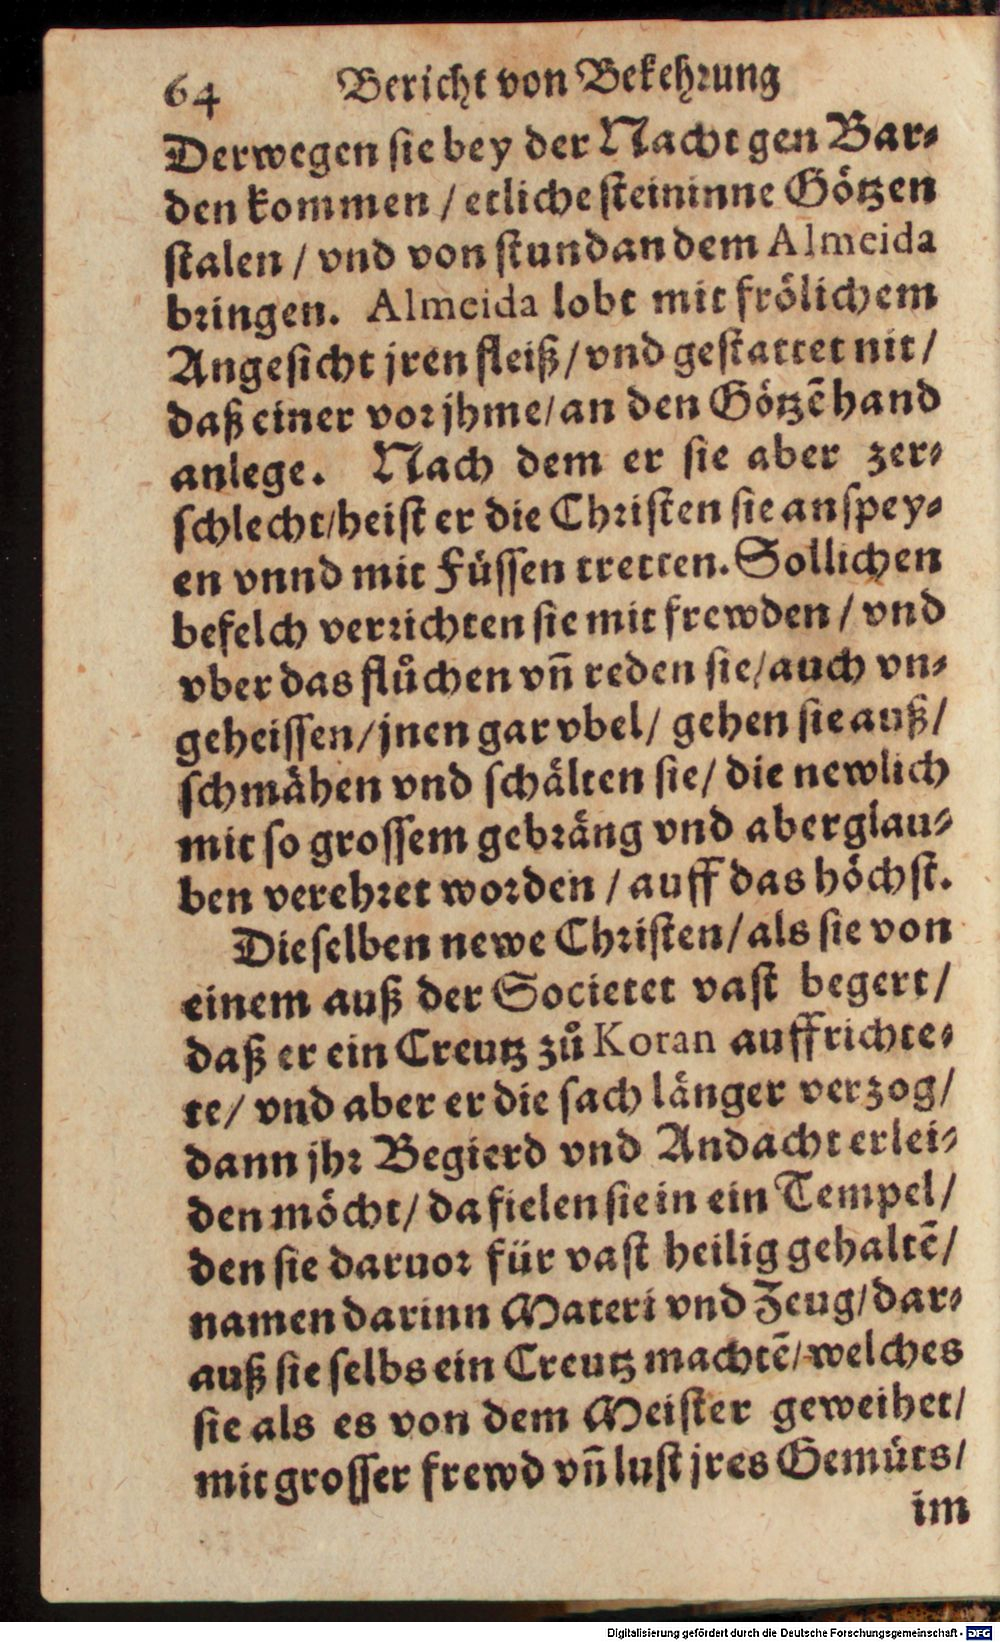 64 Bericht von Bekehrung
Derwegen sie bey der Nacht gen Bar-
den kommen / etliche steininne Götzen
stalen / vnd von stundan dem Almeida
bringen. Almeida lobt mit frölichem
Angesicht jren fleiß / vnd gestattet nit /
daß einer vor jhme / an den Götzē hand
anlege. Nach dem er sie aber zer-
schlecht / heist er die Christen sie anspey-
en vnnd mit Füssen tretten. Sollichen
befelch verrichten sie mit frewden / vnd
vber das flůchen vñ reden sie / auch vn-
geheissen / jnen gar vbel / gehen sie auß /
schmähen vnd schälten sie / die newlich
mit so grossem gebräng vnd aberglau-
ben verehret worden / auff das höchst.
Dieselben newe Christen / als sie von
einem auß der Societet vast begert /
daß er ein Creutz zů Koran auffrichte-
te / vnd aber er die sach länger verzog /
dann jhr Begierd vnd Andacht erlei-
den möcht / da fielen sie in ein Tempel /
den sie daruor für vast heilig gehaltē /
namen darinn Materi vnd Zeug / dar-
auß sie selbs ein Creutz machtē / welches
sie als es von dem Meister geweihet /
mit grosser frewd vñ lust jres Gemüts /
im
Digitalisierung gefördert durch die Deutsche Forschungsgemeinschaft - DFG